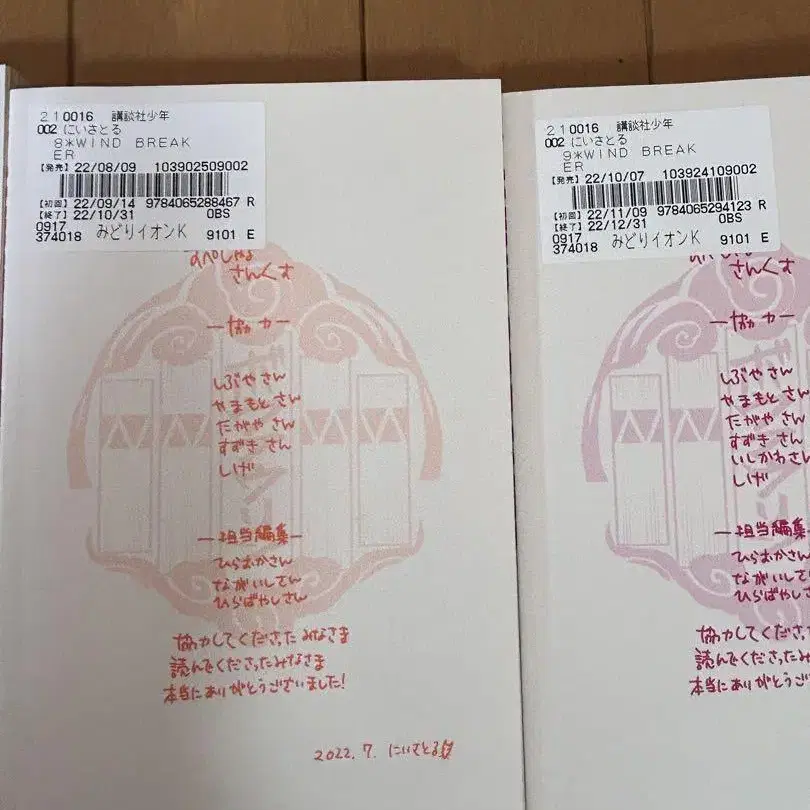 210016 講談社少年
002 にいさとる
8*WIND BREAK
ER
【発売】22/08/09 103902509002
【初回】22/09/14 9784065288467 R
【終了】22/10/31 0BS
0917
374018 みどりイオンK 9101 E
すぺしゃる
さんくす
―協力―
しぶやさん
やまもとさん
たがやさん
すずきさん
しげ
―担当編集―
ひらおかさん
ながいしさん
ひらばやしさん
協力してくださったみなさま
読んでくださったみなさま
本当にありがとうございました!
2022.7. にいさとる
210016 講談社少年
002 にいさとる
9*WIND BREAK
ER
【発売】22/10/07 103924109002
【初回】22/11/09 9784065294123 R
【終了】22/12/31 0BS
0917
374018 みどりイオンK 9101 E
すぺしゃる
さんくす
―協力―
しぶやさん
やまもとさん
たがやさん
すずきさん
いしかわさん
しげ
―担当編集
ひらおかさん
ながいしさ
ひらばやしさ
協力してくださっ
読んでくださったみ
本当にありがとうござ